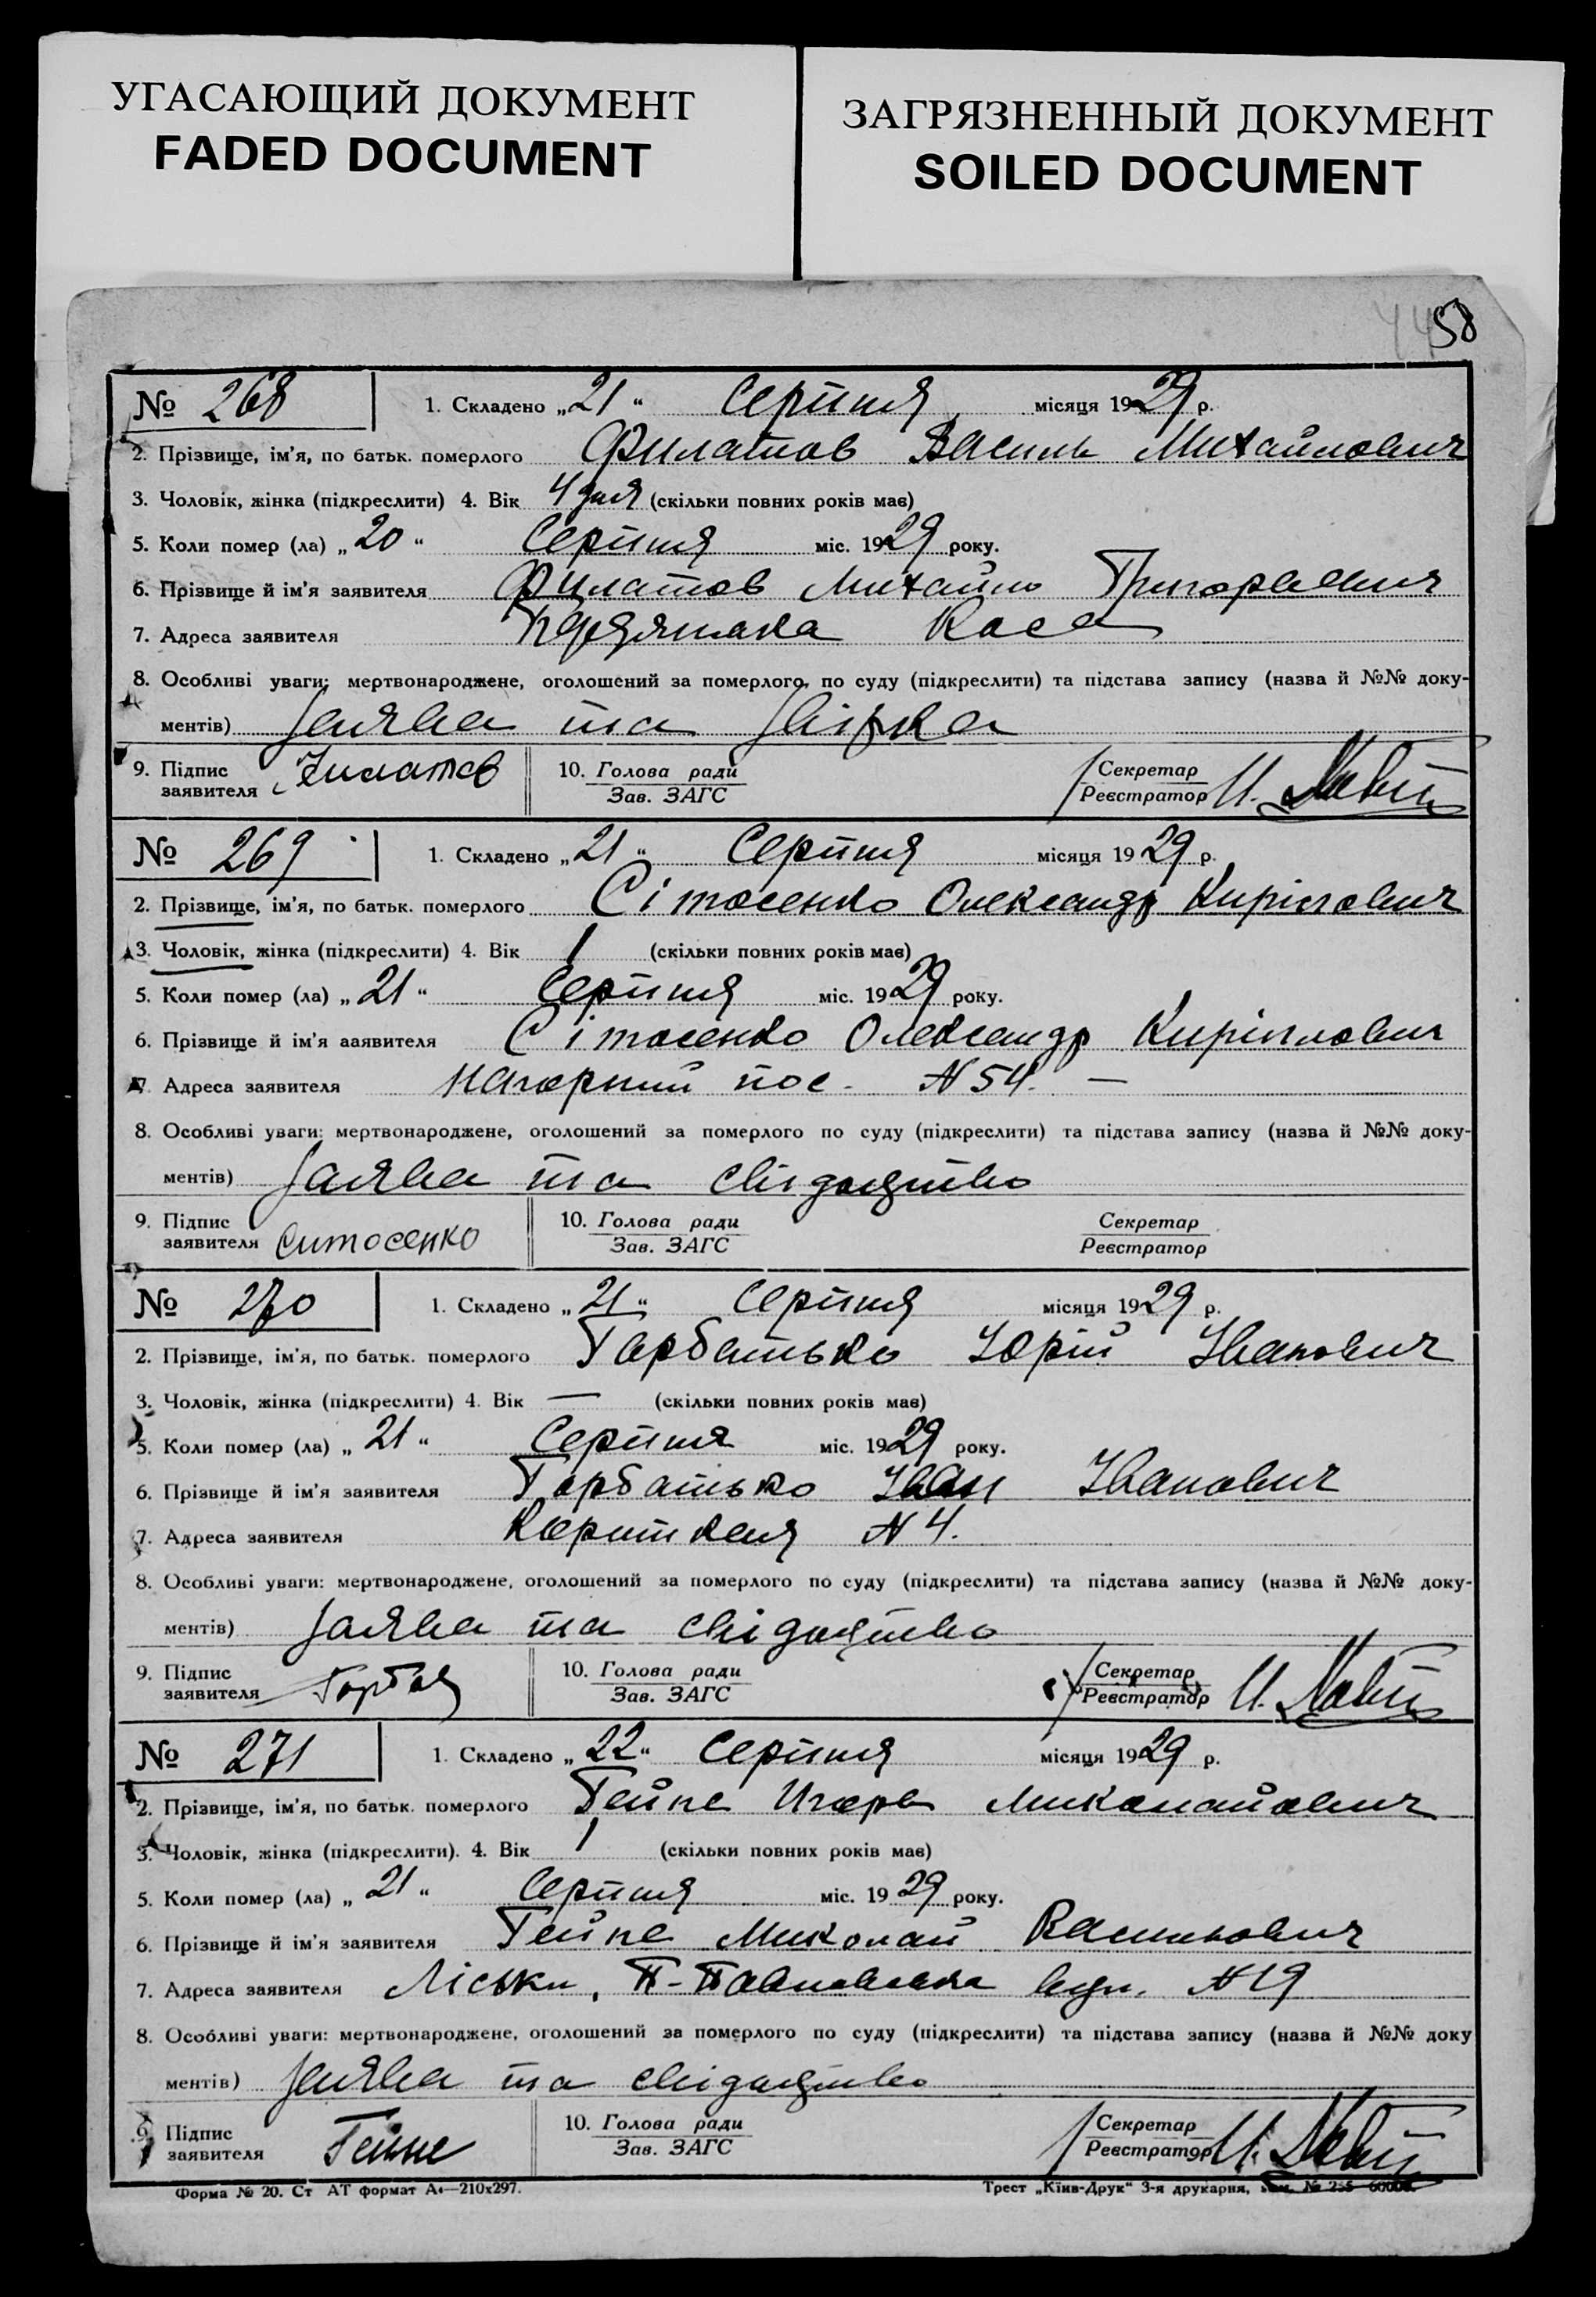 УГАСАЮЩИЙ ДОКУМЕНТ
FADED DOCUMENT
ЗАГРЯЗНЕННЫЙ ДОКУМЕНТ
SOILED DOCUMENT
58
№ 268 1. Складено „21“ Серпня місяця 1929 р.
2. Прізвище, ім'я, по батьк. померлого Филатов Василь Михайлович
3. Чоловік, жінка (підкреслити) 4. Вік 4 дня (скільки повних років має)
5. Коли помер (ла) „20“ Серпня міс. 1929 року.
6. Прізвище й ім'я заявителя Филатов Михайло Григорович
7. Адреса заявителя Коса
8. Особливі уваги: мертвонароджене, оголошений за померлого, по суду (підкреслити) та підстава запису (назва й №№ доку-
ментів) Заява та
9. Підпис заявителя Филатов 10. Голова ради Зав. ЗАГС Секретар Реєстратор
№ 269 1. Складено „21“ Серпня місяця 1929 р.
2. Прізвище, ім'я, по батьк. померлого Сітосенко Олександр Кирілович
3. Чоловік, жінка (підкреслити) 4. Вік 1 (скільки повних років має)
5. Коли помер (ла) „21“ Серпня міс. 1929 року.
6. Прізвище й ім'я ааявителя Сітосенко Олександр Кирілович
7. Адреса заявителя Нагорний пос. N 54. —
8. Особливі уваги: мертвонароджене, оголошений за померлого по суду (підкреслити) та підстава запису (назва й №№ доку-
ментів) Заява та свідоцтво
9. Підпис заявителя Ситосенко 10. Голова ради Зав. ЗАГС Секретар Реєстратор
№ 270 1. Складено „21“ Серпня місяця 1929 р.
2. Прізвище, ім'я, по батьк. померлого Горбатько Юрій Іванович
3. Чоловік, жінка (підкреслити) 4. Вік — (скільки повних років має)
5. Коли помер (ла) „21“ Серпня міс. 1929 року.
6. Прізвище й ім'я заявителя Горбатько Іван Іванович
7. Адреса заявителя N 4.
8. Особливі уваги: мертвонароджене, оголошений за померлого по суду (підкреслити) та підстава запису (назва й №№ доку-
ментів) Заява та свідоцтво
9. Підпис заявителя 10. Голова ради Зав. ЗАГС Секретар Реєстратор
№ 271 1. Складено „22“ Серпня місяця 1929 р.
2. Прізвище, ім'я, по батьк. померлого Гейне Игорь Миколайович
3. Чоловік, жінка (підкреслити). 4. Вік 1 (скільки повних років має)
5. Коли помер (ла) „21“ Серпня міс. 1929 року.
6. Прізвище й ім'я заявителя Гейне Миколай Васильович
7. Адреса заявителя Ліськи, П-Павловська вул. N 19
8. Особливі уваги: мертвонароджене, оголошений за померлого по суду (підкреслити) та підстава запису (назва й №№ доку
ментів) Заява та свідоцтво
9. Підпис заявителя Гейне 10. Голова ради Зав. ЗАГС Секретар Реєстратор
Форма № 20. Ст АТ формат А4—210х297. Трест „Київ-Друк“ 3-я друкарня,